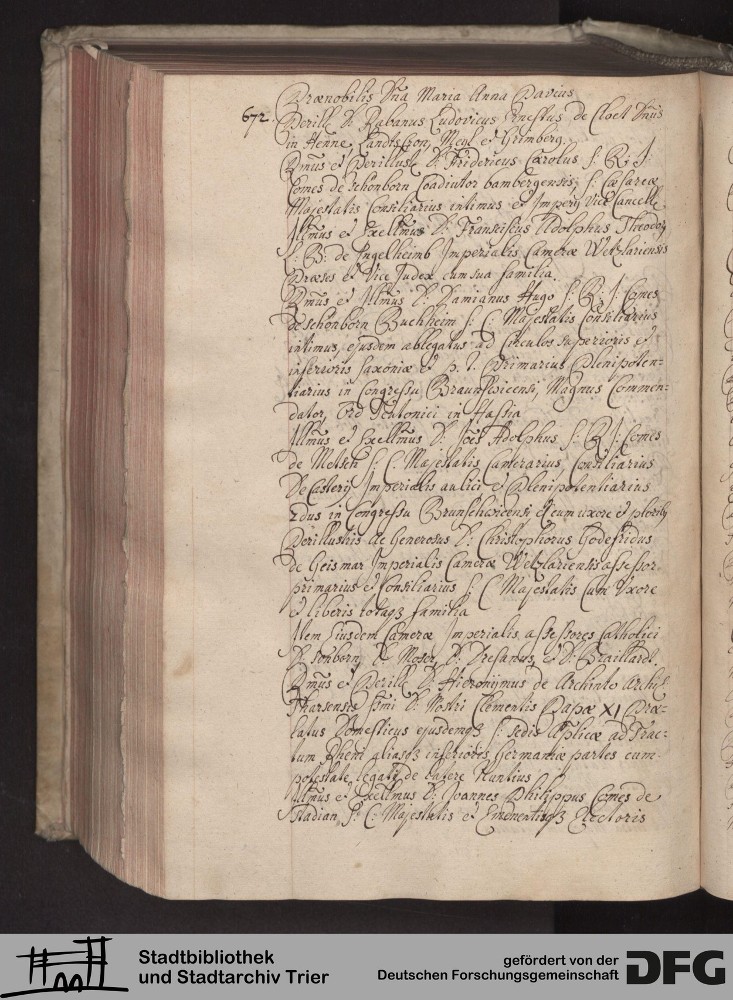 Prænobilis Dña Maria Anna Pavius
672. Perill. D. Rabanus Ludovicus Ernestus de Cloet Dñus
in Henne, Landtscron, Meyl et Grimberg.
Rmus et Perillust. D. Fridericus Carolus S. R. J.
Comes de Schönborn Coadiutor bambergensis, S. Cæsareæ
Majestatis Consiliarius intimus et Imperij Vice Cancell.
Jllmus et Excellmus D. Franciscus Adolphus Theodor
L. B. de Ingelheimb Imperialis Cameræ Wetzlariensis
Præses et Vice Judex cum sua familia.
Rmus et Jllmus D. Damianus Hugo S. R. J. Comes
de Schönborn Buchheim S. C. Majestatis Consiliarius
intimus, ejusdem ablegatus ad Circulos superioris et
inferioris Saxoniæ et p. t. Primarius Plenipoten-
tiarius in Congressu Braunswicensi, Magnus Commen-
dator Ord Teutonici in Hassia
Jllmus et Excellmus D. Joes Adolphus S. R. J. Comes
de Metsch S. C. Majestatis Camerarius, Consiliarius
Imperialis aulici et Plenipotentiarius
2dus in Congressu Brunschwicensi cum uxore et
Perillustris ac Generosus D. Christophorus Godefridus
de Geismar Imperialis Cameræ Wetzlariensis assessor
primarius et Consiliarius S. C. Majestatis Cum Uxore
et liberis totaqȝ familia
Item Eiusdem Cameræ Imperialis assessores Catholici
D. Schborn, D. Moser, D. Dresanus, et D. Braillardt.
Rmus et Perill. D. Hieronymus de Archinto Archi
Tharsensis ssmi D. Nostri Clementis Papæ XI Præ-
latus Domesticus ejusdemqȝ S. Sedis Aplicæ ad Trac-
tum Rheni aliasqȝ inferiores Germaniæ partes cum
potestate legati de latere Nuntius
Jllmus et Excellmus D. Joannes Philippus Comes de
Stadian S. C. Majestatis et Eminentisqȝ Electoris
Stadtbibliothek
und Stadtarchiv Trier
gefördert von der
Deutschen Forschungsgemeinschaft
DFG